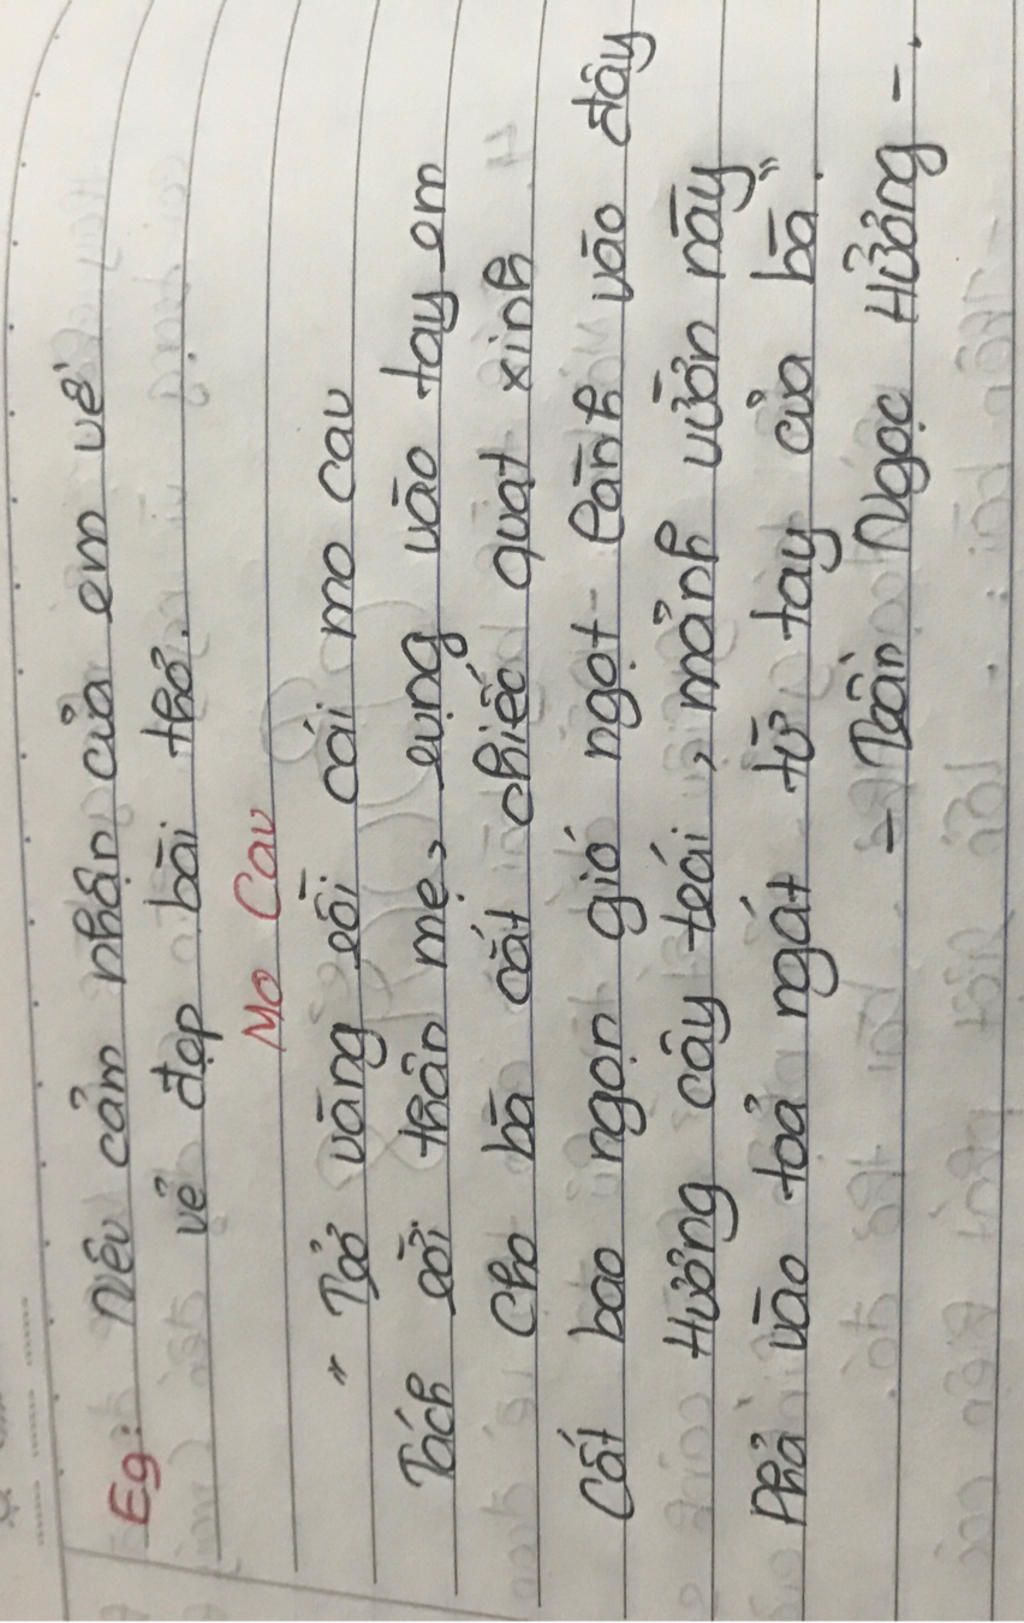 Eg: Nêu cảm nhận của em về
vẻ đẹp bài thơ.
Mo Cau
" Tớ vàng rồi cái mo cau
Tách rời thân mẹ, rụng vào tay em
Cho bà cắt chiếc quạt xinh
Cất bao ngọn gió ngọt lành vào đây
Hương cây trái, mảnh vườn này
Phả vào toả ngát từ tay của bà".
- Trần Ngọc Hưởng -.